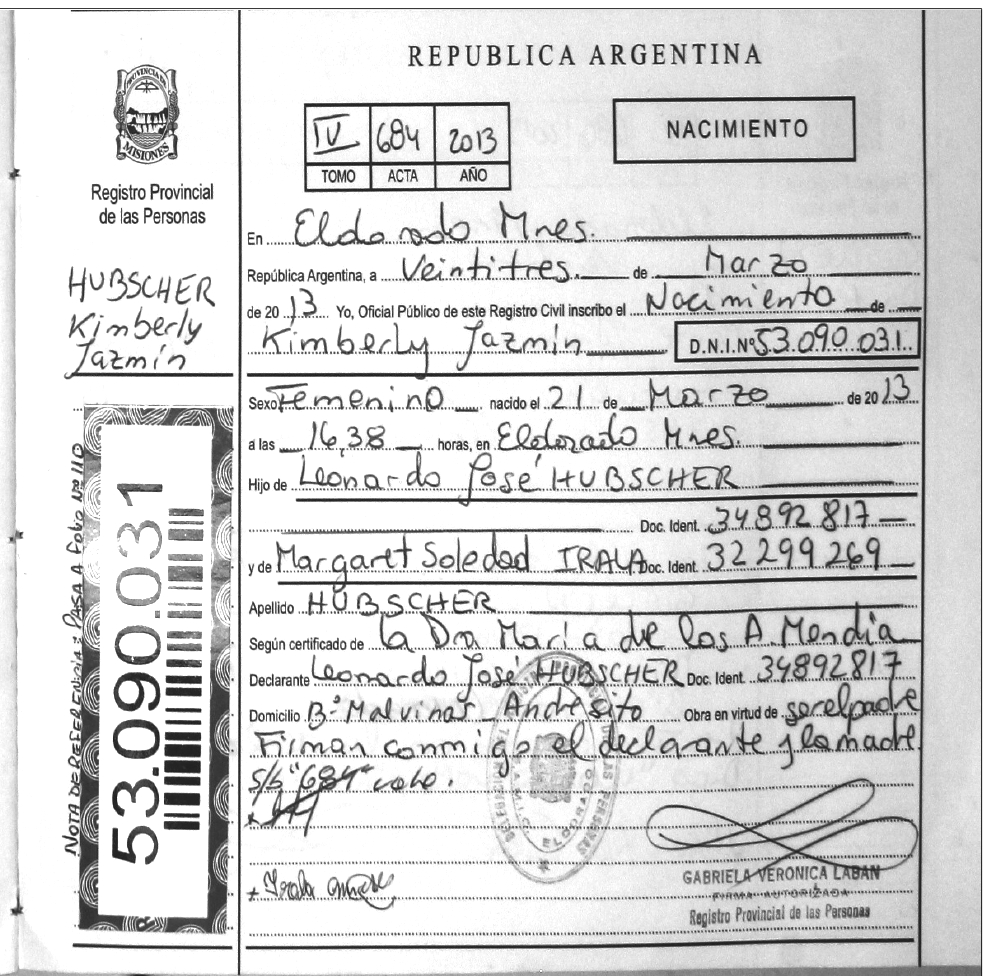 REPUBLICA ARGENTINA
PROVINCIA DE
MISIONES
Registro Provincial
de las Personas
IV 684 2013
TOMO ACTA AÑO
NACIMIENTO
HUBSCHER
Kimberly
Jazmín
NOTA DE REFERENCIA: PASA A FOLIO Nº 110
53.090.031
En Eldorado Mnes.
República Argentina, a Veintitres de Marzo
de 2013 Yo, Oficial Público de este Registro Civil inscribo el Nacimiento de
Kimberly Jazmín D.N.I.Nº 53.090.031
Sexo Femenino nacido el 21 de Marzo de 2013
a las 16,38 horas, en Eldorado Mnes.
Hijo de Leonardo José HUBSCHER
Doc. Ident. 34892817
y de Margaret Soledad IRALA Doc. Ident. 32299269
Apellido HUBSCHER
Según certificado de la Dra María de los A. Mendia
Declarante Leonardo José HUBSCHER Doc. Ident. 34892817
Domicilio Bº Malvinas - Andresito Obra en virtud de ser el padre
Firman conmigo el declarante y la madre
s/b "684" vale.
GABRIELA VERONICA LABAN
FIRMA AUTORIZADA
Registro Provincial de las Personas